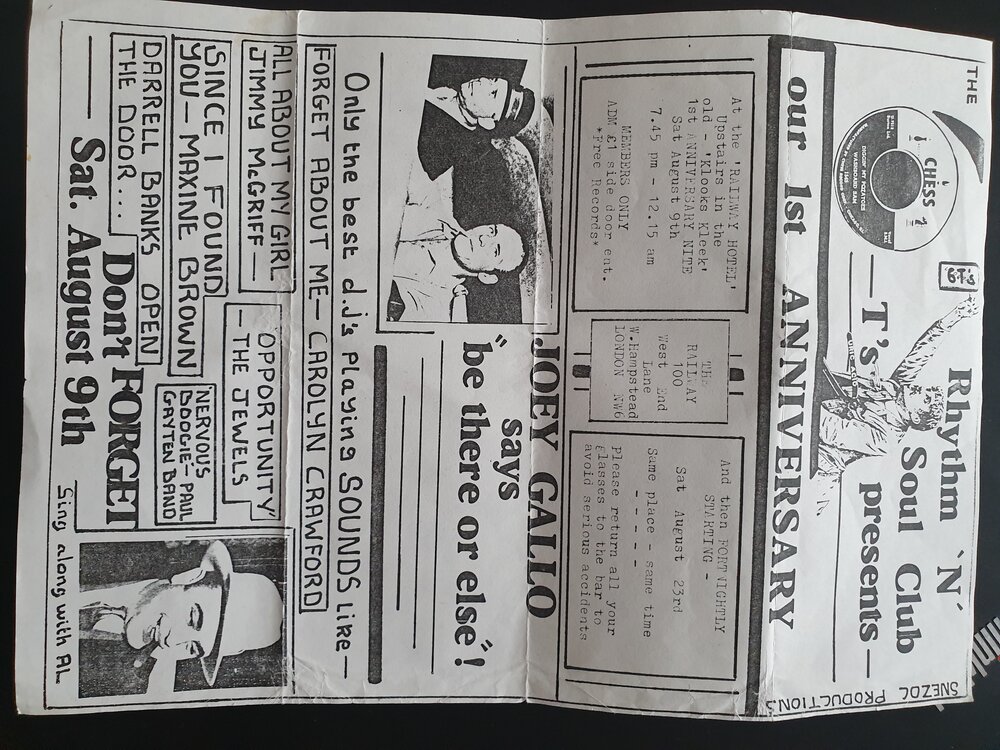 THE
6.T's
Rhythm 'N'
Soul Club
—T's presents—
SNEZOL PRODUCTIONS
CHESS
DIGGIN' MY POTATOES
WASHBOARD SAM
our 1st ANNIVERSARY
At the 'RAILWAY HOTEL'
Upstairs in the
old - 'Klooks Kleek'
1st ANNIVERSARY NITE
Sat August 9th
7.45 pm - 12.15 am
MEMBERS ONLY
ADM £1 side door ent.
*Free Records*
THE
RAILWAY
100
West End
Lane
W.Hampstead
LONDON NW6
And then FORTNIGHTLY
STARTING -
Sat August 23rd
Same place - same time
- - - - -
Please return all your
glasses to the bar to
avoid serious accidents
JOEY GALLO
says
"be there or else"!
Only the best d.j's playing SOUNDS like—
FORGET ABOUT ME— CAROLYN CRAWFORD
ALL ABOUT MY GIRL
JIMMY McGRIFF
OPPORTUNITY
— THE JEWELS
SINCE I FOUND
YOU— MAXINE BROWN
NERVOUS
BOOGIE— PAUL
GAYTEN BAND
DARRELL BANKS OPEN
THE DOOR...
Don't FORGET
— Sat. August 9th
Sing along with AL